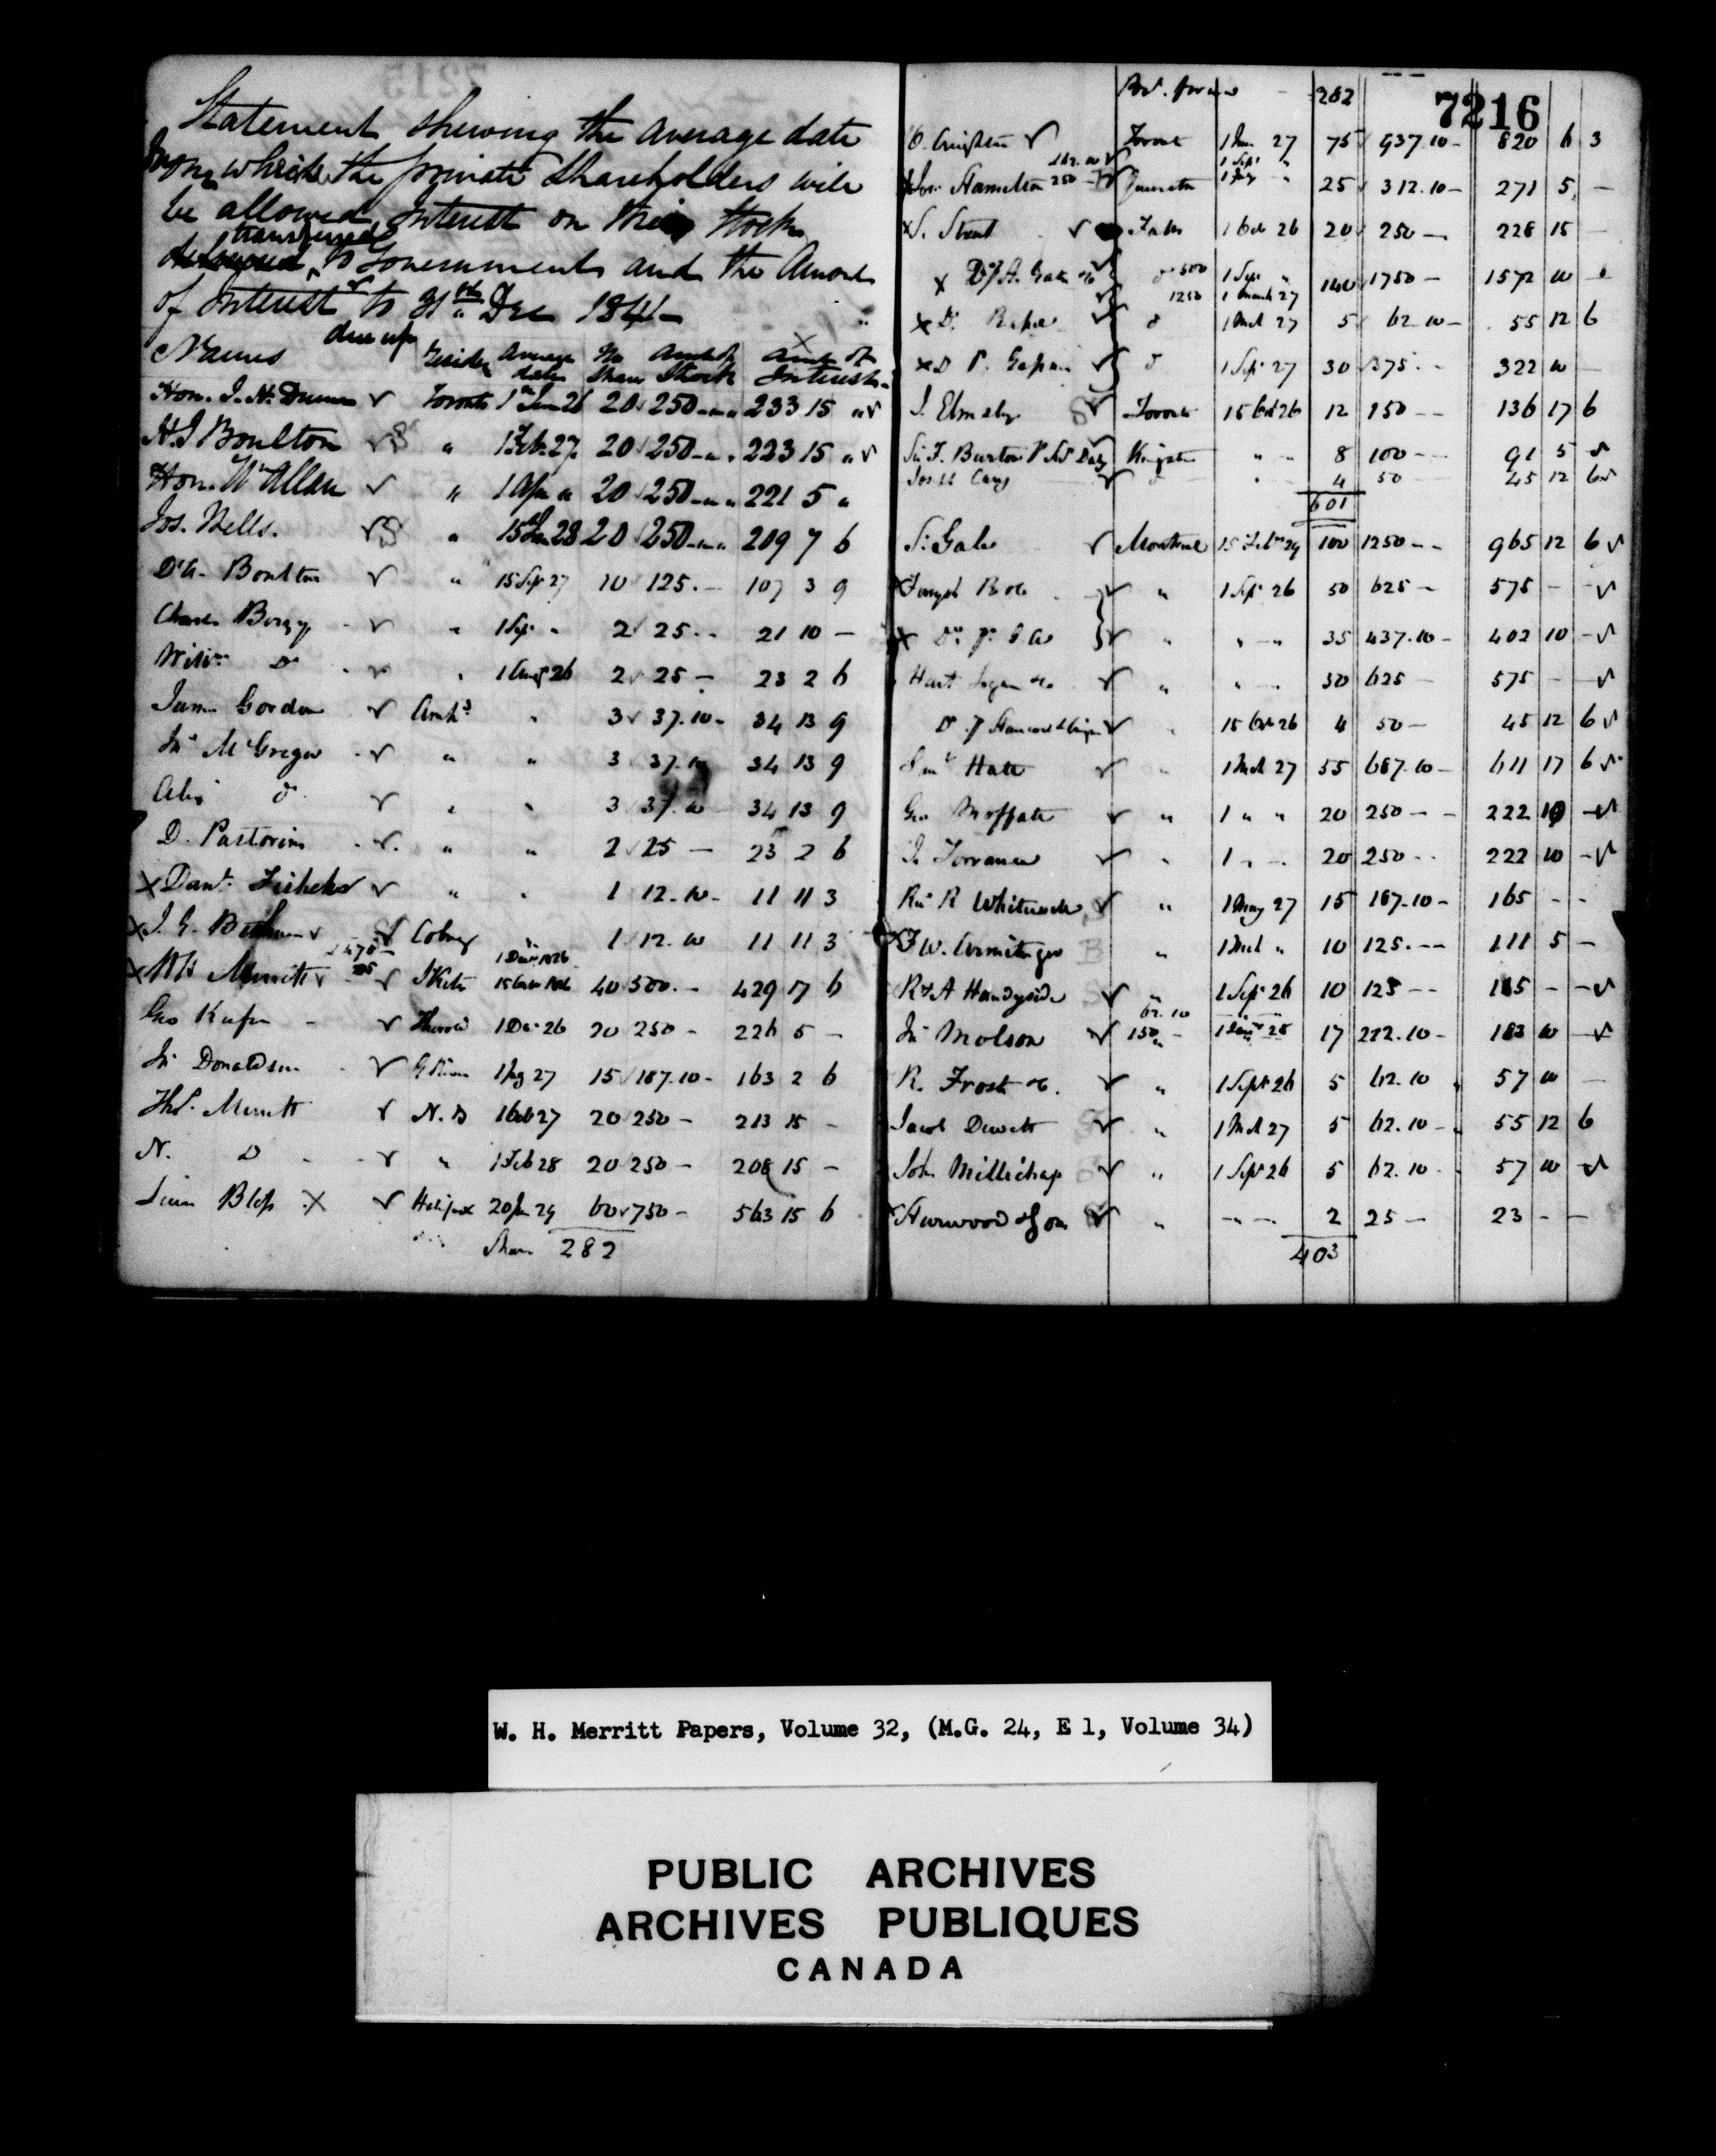 Statement shewing the average date
from which the private Shareholders will
be allowed Interest on their Stock
transferred
to Government and the Amount
of Interest to 31st Dec 1841
due up
Names Average No Amt of Amt of
date Share Stock Interest
Hon. J. H. Dunn Toronto 1 Jan 26 20 250 233 15 "
H. J Boulton " 1 Feb. 27 20 250 223 15 "
Hon. Wm Allan " 1 Apr " 20 250 221 5 "
Jos. Wells. " 15 Jan 28 20 250 209 7 6
D'A. Boulton " 15 Sep 27 10 125. - 107 3 9
Charles " 1 Sep " 2 25 .. 21 10 -
Willm Do " 1 Aug 26 2 25 - 23 2 6
James Gordon Amhg " 3 37.10 - 34 13 9
Jno McGregor " " 3 37.10 34 13 9
Alex do " " 3 37.10 34 13 9
D. Pastorius " " 2 25 - 23 2 6
X Danl. " " 1 12.10 - 11 11 3
X J. G. Bethune Cobourg " 1 12.10 11 11 3
£475 - 1 Decr 1826
25
X W H Merritt 40 500. - 429 17 6
Geo Keefer - Thorold 1 Dec 26 20 250 - 226 5 -
Jn Donaldson 1 Aug 27 15 187.10 - 163 2 6
Ths. Merritt N. D 1 Oct 27 20 250 - 213 15 -
N. D " 1 Feb 28 20 250 - 208 15 -
Bliss X Halifax 20 Jan 29 60 750 - 563 15 6
Share 282
7216
Bt. forward - 282
C. Toronto 1 Jan. 27 75 937.10 - 820 6 3
1 Sept "
X Hamilton 250 Queenston 1 July " 25 312.10 - 271 5 -
X S. Street Falls 1 Oct 26 20 250 - 228 15 -
X do 500 1 Sep " 140 1750 - 1572 10 -
1250 1 March 27
X D. do 1 Mch 27 5 62.10 - 55 12 6
X D do 1 Sep 27 30 375. - 322 10 -
J. Elmsley Toronto 15 Oct 26 12 150 - - 136 17 6
Sir F. Burton Kingston " " 8 100 - - 91 5 -
" 4 50 45 12 6
601
S. Gale Montreal 15 Feb 29 100 1250 - - 965 12 6
X Forsyth " 1 Sep 26 50 625 - 575 - -
X " " " 35 437.10 - 402 10 -
Hart Logan & Co " " " 50 625 - 575 - -
15 Oct 26 4 50 - 45 12 6
Saml Hatt " 1 Mch 27 55 687.10 - 611 17 6
Geo Moffatt " 1 " " 20 250 - - 222 10 -
J. Torrance " 1 " " 20 250 - - 222 10 -
R Whitwell " 1 May 27 15 187.10 - 165 - -
X F W. Armitinger " 1 Mch " 10 125. - - 111 5 -
R & A Handyside " 1 Sep 26 10 125 - - 115 - -
62.10
Jn Molson 150 - 17 212.10 - 183 10 -
R. Frost & Co. " 1 Sept 26 5 62.10 57 10 -
Jacob Dewitt " 1 Mch 27 5 62.10 - 55 12 6
John Millichap " 1 Sep 26 5 62.10 57 10 -
X Harwood & Son " - " - 2 25 - 23 - -
403
W. H. Merritt Papers, Volume 32, (M.G. 24, E 1, Volume 34)
PUBLIC ARCHIVES
ARCHIVES PUBLIQUES
CANADA